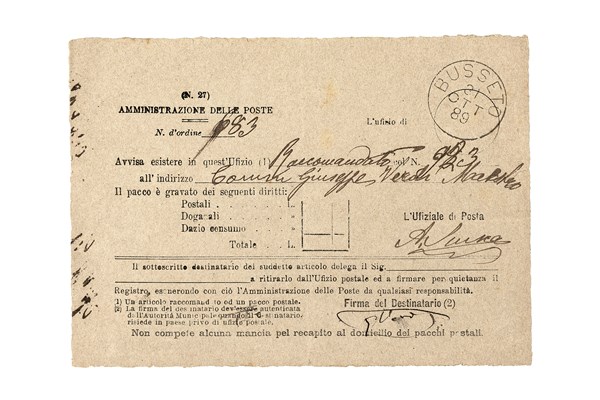 (N. 27)
AMMINISTRAZIONE DELLE POSTE
N. d'ordine 683
L'ufizio di
BUSSETO
21
OTT
89
Avvisa esistere in quest'Ufizio (1) Raccomandato col N. 923
all' indirizzo Comm Giuseppe Verdi Maestro
Il pacco è gravato dei seguenti diritti:
Postali . . . . »
Doganali . . . »
Dazio consumo . »
Totale . . L.
L'Ufiziale di Posta
Il sottoscritto destinatario del suddetto articolo delega il Sig.
a ritirarlo dall'Ufizio postale ed a firmare per quietanza il
Registro, esonerando con ciò l'Amministrazione delle Poste da qualsiasi responsabilità.
(1) Un articolo raccomandato od un pacco postale.
(2) La firma del destinatario dev'essere autenticata
dall'Autorità Municipale quando il destinatario,
risiede in paese privo di ufizio postale.
Firma del Destinatario (2)
G Verdi
Non compete alcuna mancia pel recapito al domicilio dei pacchi postali.